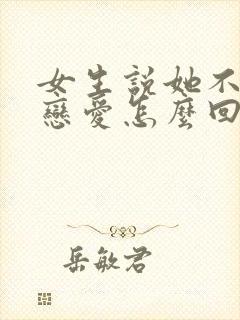 女生説她不
戀愛怎麼回
岳敏君